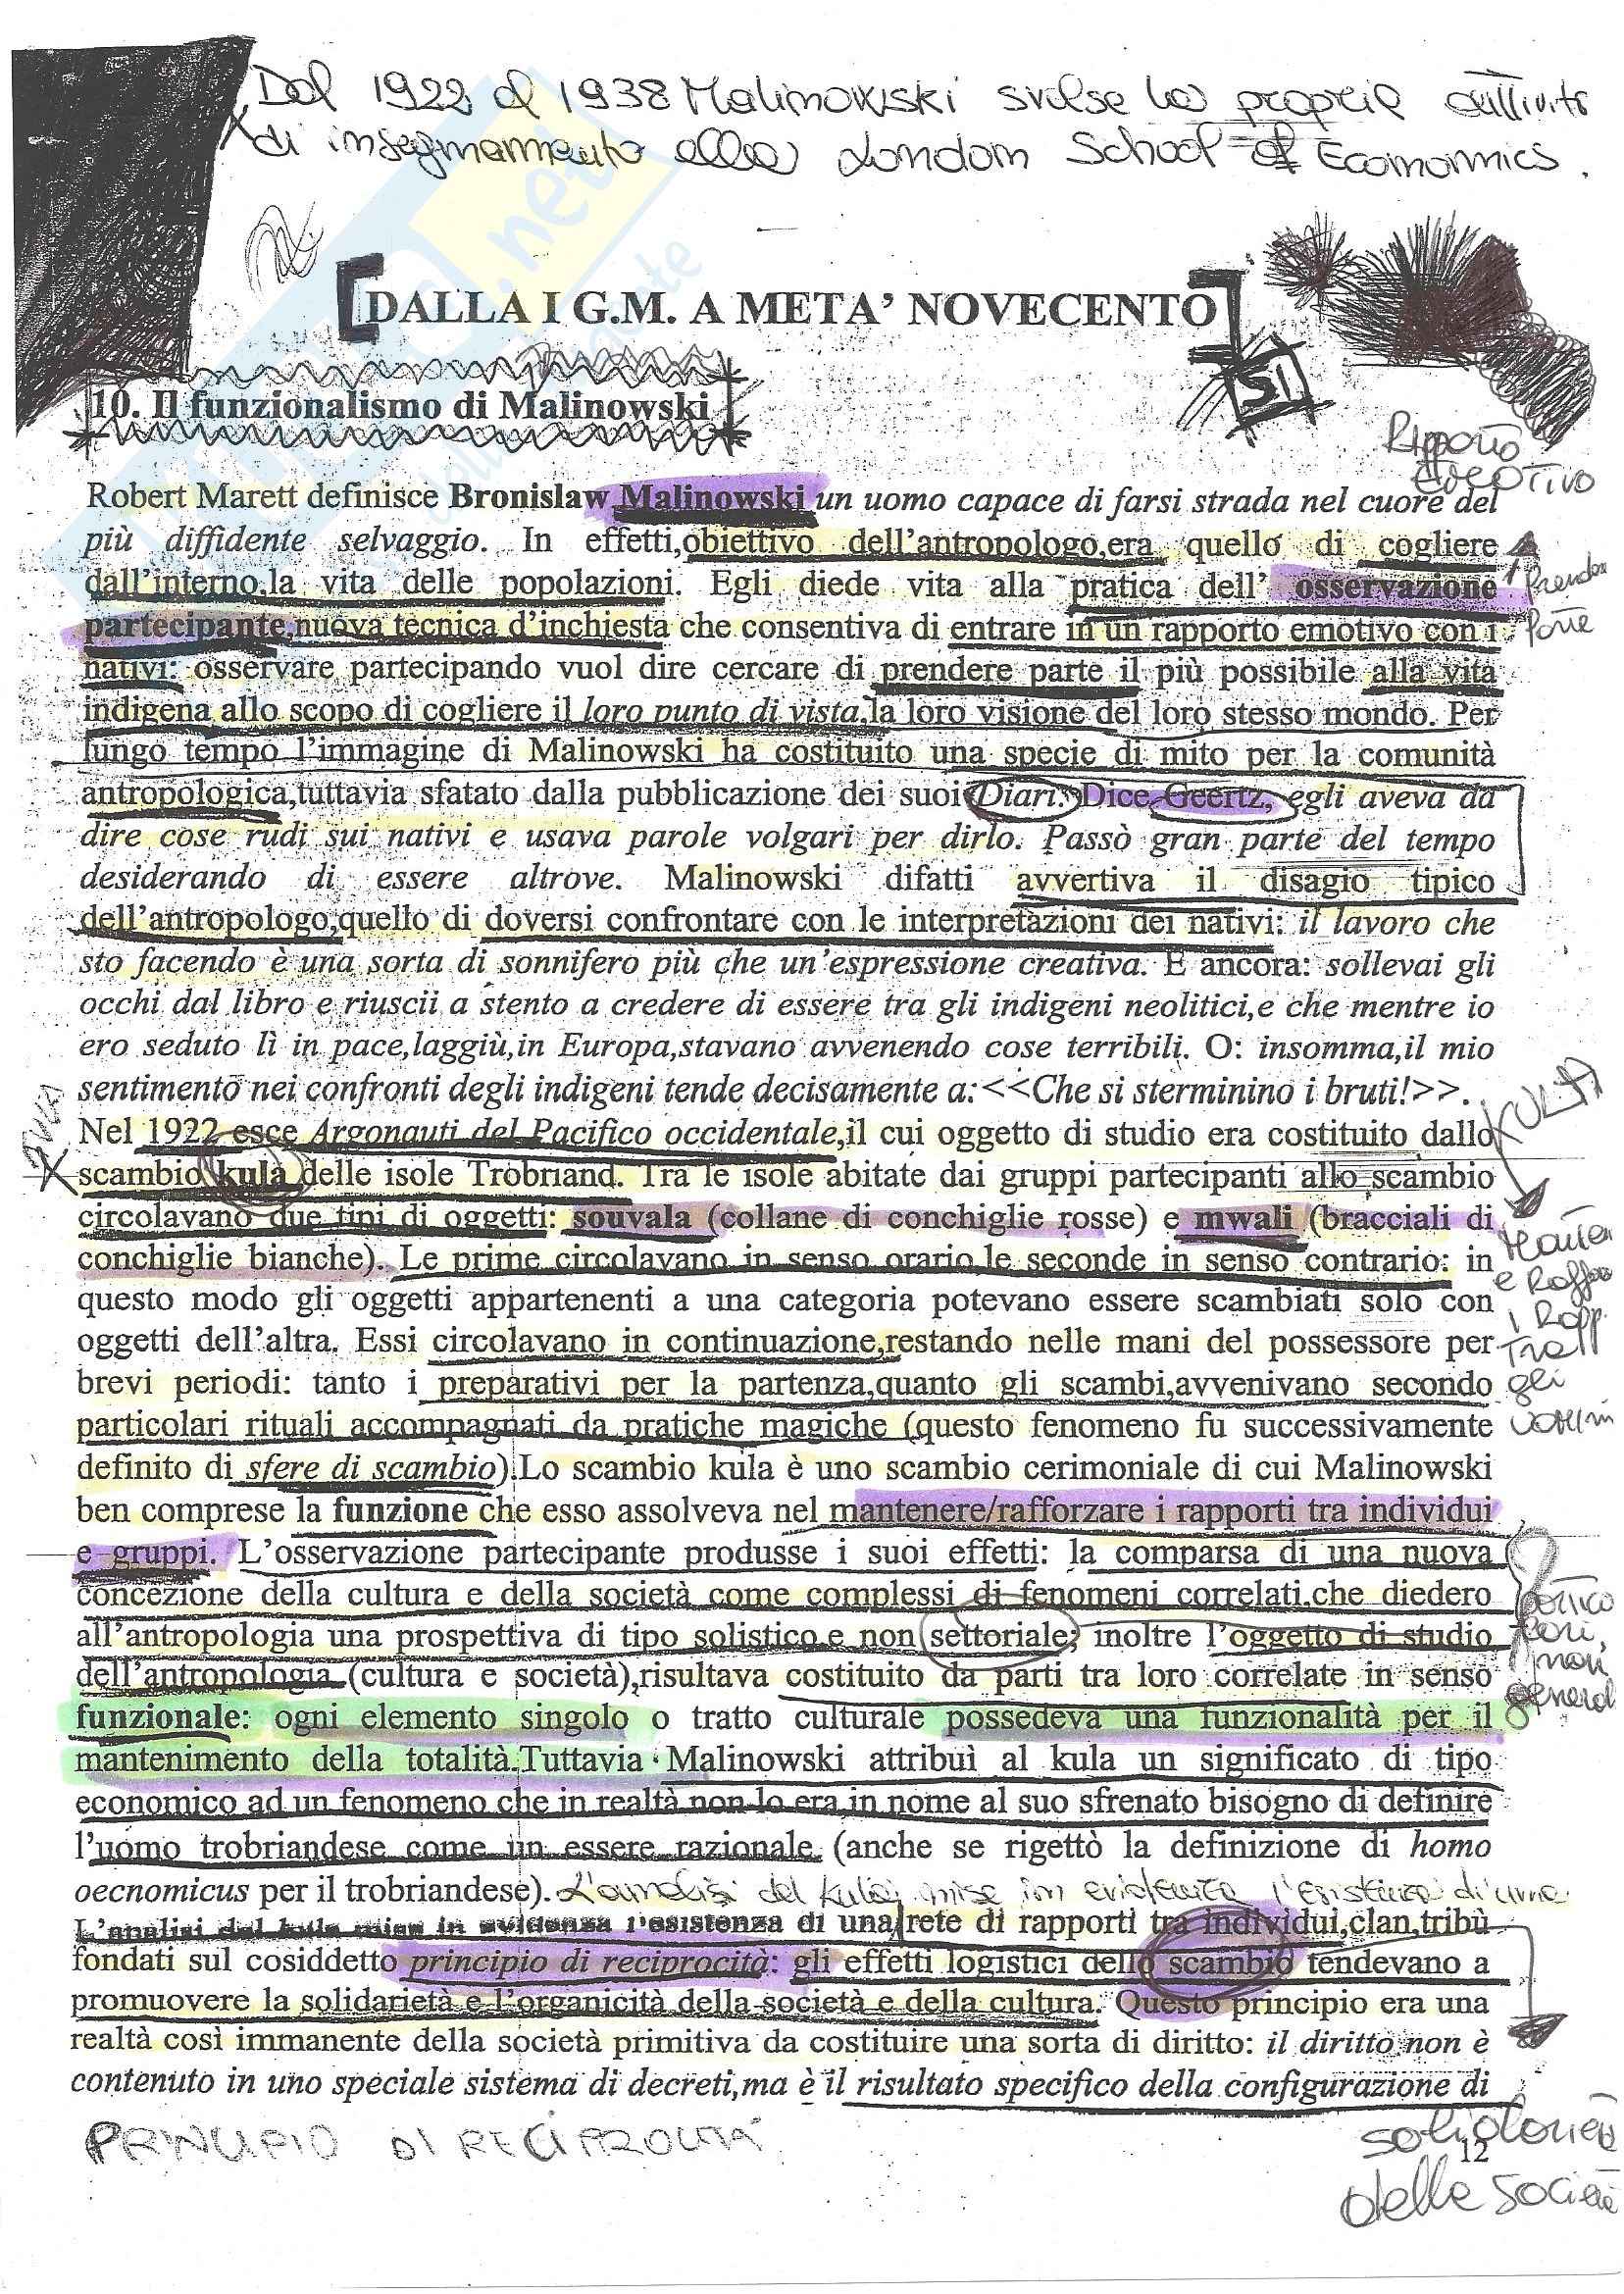 Dal 1922 al 1938 Malinowski svolse la propria attività
di insegnamento alla London School of Economics.
[DALLA I G.M. A META’ NOVECENTO]
SI
10. Il funzionalismo di Malinowski
Rapporto
EMOTIVO
Robert Marett definisce Bronislaw Malinowski un uomo capace di farsi strada nel cuore del
più diffidente selvaggio. In effetti,obiettivo dell’antropologo,era quello di cogliere
dall’interno,la vita delle popolazioni. Egli diede vita alla pratica dell’ osservazione
prendere
parte
partecipante,nuova tecnica d’inchiesta che consentiva di entrare in un rapporto emotivo con i
nativi: osservare partecipando vuol dire cercare di prendere parte il più possibile alla vita
indigena allo scopo di cogliere il loro punto di vista,la loro visione del loro stesso mondo. Per
lungo tempo l’immagine di Malinowski ha costituito una specie di mito per la comunità
antropologica,tuttavia sfatato dalla pubblicazione dei suoi Diari. Dice Geertz, egli aveva da
dire cose rudi sui nativi e usava parole volgari per dirlo. Passò gran parte del tempo
desiderando di essere altrove. Malinowski difatti avvertiva il disagio tipico
dell’antropologo,quello di doversi confrontare con le interpretazioni dei nativi: il lavoro che
sto facendo è una sorta di sonnifero più che un’espressione creativa. E ancora: sollevai gli
occhi dal libro e riuscii a stento a credere di essere tra gli indigeni neolitici,e che mentre io
ero seduto lì in pace,laggiù,in Europa,stavano avvenendo cose terribili. O: insomma,il mio
sentimento nei confronti degli indigeni tende decisamente a:<<Che si sterminino i bruti!>>.
KULA
Nel 1922 esce Argonauti del Pacifico occidentale,il cui oggetto di studio era costituito dallo
scambio kula delle isole Trobriand. Tra le isole abitate dai gruppi partecipanti allo scambio
circolavano due tipi di oggetti: souvala (collane di conchiglie rosse) e mwali (bracciali di
conchiglie bianche). Le prime circolavano in senso orario,le seconde in senso contrario: in
questo modo gli oggetti appartenenti a una categoria potevano essere scambiati solo con
oggetti dell’altra. Essi circolavano in continuazione,restando nelle mani del possessore per
i Rapp.
Tra
gli
brevi periodi: tanto i preparativi per la partenza,quanto gli scambi,avvenivano secondo
particolari rituali accompagnati da pratiche magiche (questo fenomeno fu successivamente
definito di sfere di scambio).Lo scambio kula è uno scambio cerimoniale di cui Malinowski
ben comprese la funzione che esso assolveva nel mantenere/rafforzare i rapporti tra individui
e gruppi. L’osservazione partecipante produsse i suoi effetti: la comparsa di una nuova
concezione della cultura e della società come complessi di fenomeni correlati,che diedero
all’antropologia una prospettiva di tipo solistico e non settoriale; inoltre l’oggetto di studio
dell’antropologia (cultura e società),risultava costituito da parti tra loro correlate in senso
non
funzionale: ogni elemento singolo o tratto culturale possedeva una funzionalità per il
mantenimento della totalità.Tuttavia Malinowski attribuì al kula un significato di tipo
economico ad un fenomeno che in realtà non lo era,in nome al suo sfrenato bisogno di definire
l’uomo trobriandese come un essere razionale (anche se rigettò la definizione di homo
oecnomicus per il trobriandese). L'analisi del kula mise in evidenza l'esistenza di una
L’analisi del kula mise in evidenza l’esistenza di una rete di rapporti tra individui,clan,tribù
fondati sul cosiddetto principio di reciprocità: gli effetti logistici dello scambio tendevano a
promuovere la solidarietà e l’organicità della società e della cultura. Questo principio era una
realtà così immanente della società primitiva da costituire una sorta di diritto: il diritto non è
contenuto in uno speciale sistema di decreti,ma è il risultato specifico della configurazione di
PRINCIPIO DI RECIPROCITÀ
solidarietà
della società
12